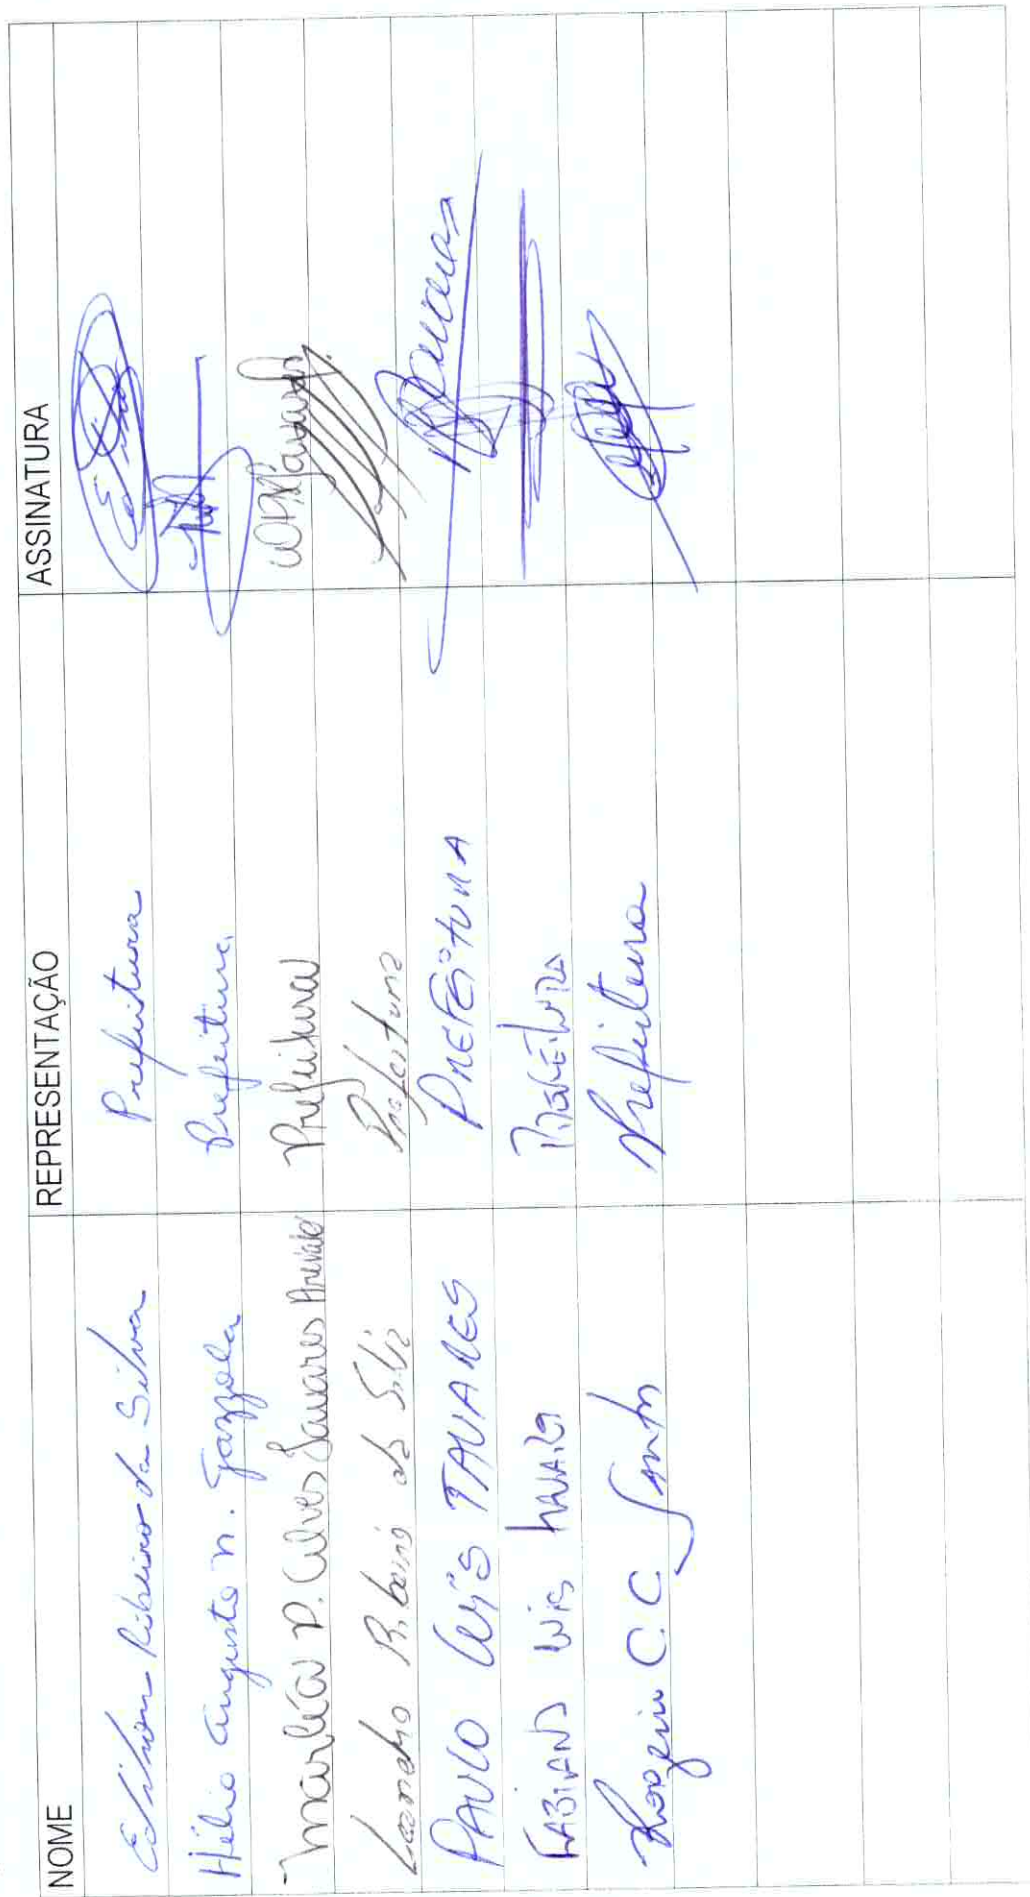 NOME REPRESENTAÇÃO ASSINATURA
Edilson Ribeiro da Silva Prefeitura
Hélio Augusto N. Gazzola Prefeitura
Marléa P. Alves Prefeitura
Leandro Ribeiro da Silva Prefeitura
PAULO LUÍS TAVARES PREFEITURA Tavares
FABIANO LUIS PREFEITURA
C.C. Santos Prefeitura